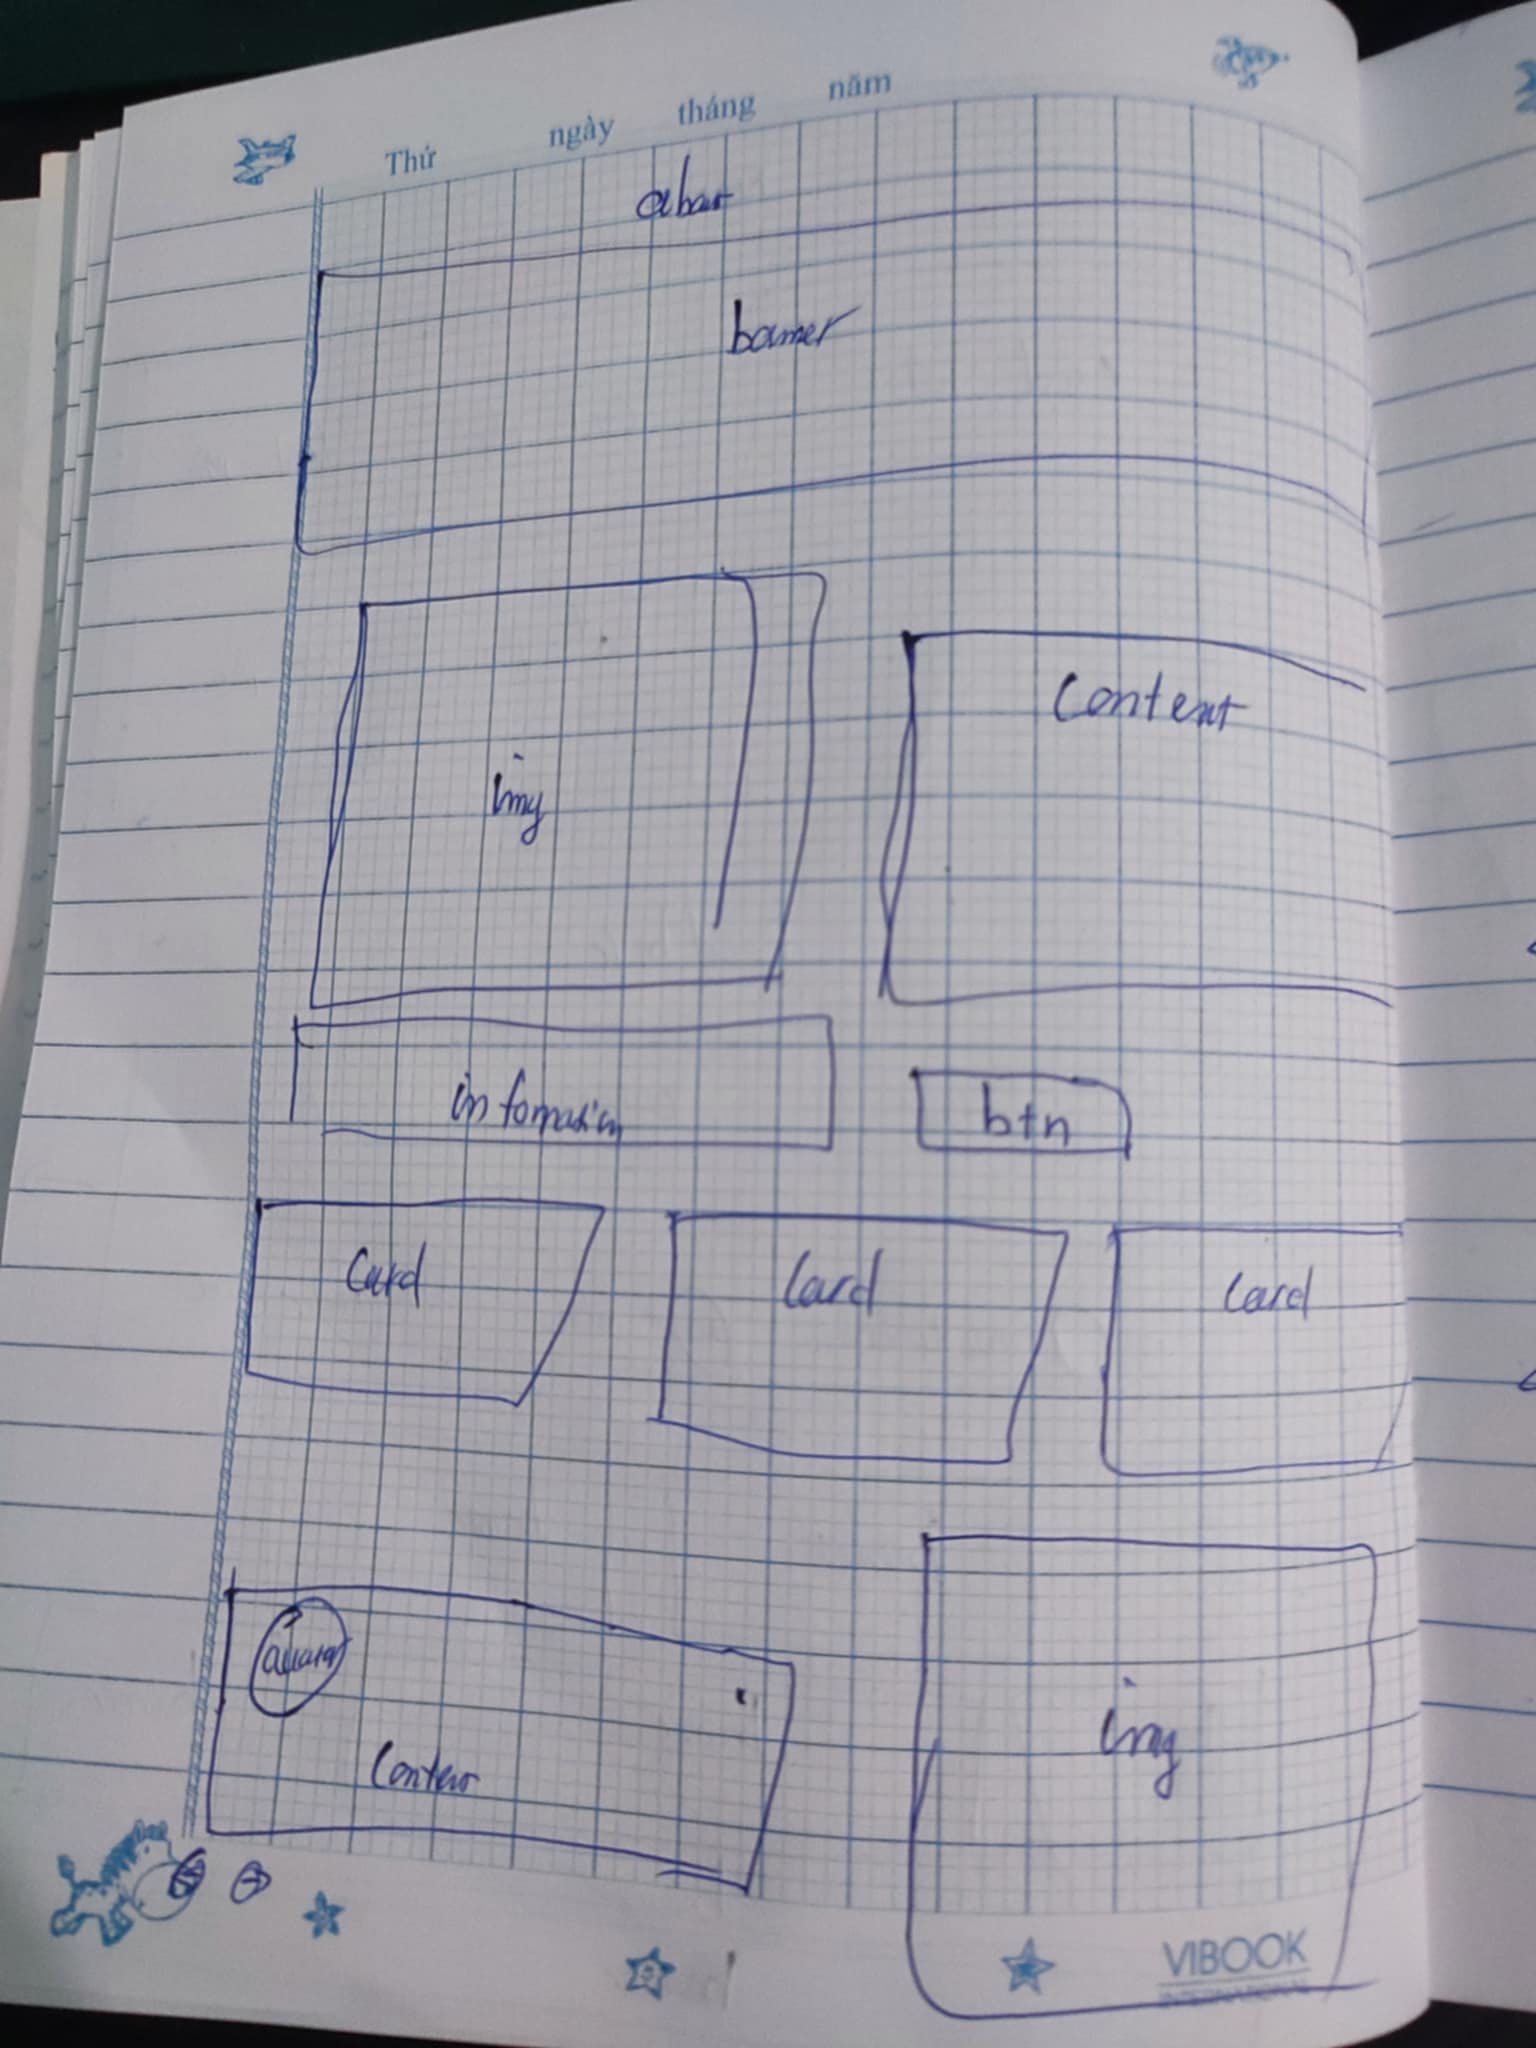 Thứ ngày tháng năm
about
banner
img
Content
infomation
btn
Card
Card
Card
avatar
Content
img
VIBOOK
INTERNATIONAL